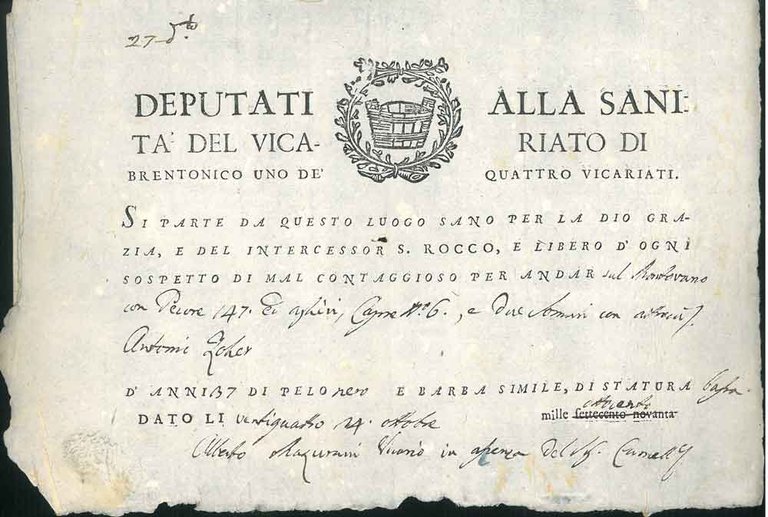 27 d.to
DEPUTATI ALLA SANI-
TA' DEL VICA- RIATO DI
BRENTONICO UNO DE' QUATTRO VICARIATI.
SI PARTE DA QUESTO LUOGO SANO PER LA DIO GRA-
ZIA, E DEL INTERCESSOR S. ROCCO, E LIBERO D'OGNI
SOSPETTO DI MAL CONTAGGIOSO PER ANDAR sul Mantovano
con Pecore 147. Ed Capre N.o 6., e due Somari con
Antonio
D'ANNI 37 DI PELO nero E BARBA SIMILE, DI STATURA bassa
ottocento
DATO LI ventiquattro 24. ottobre mille settecento novanta
Alberto Vicario in del Sig.